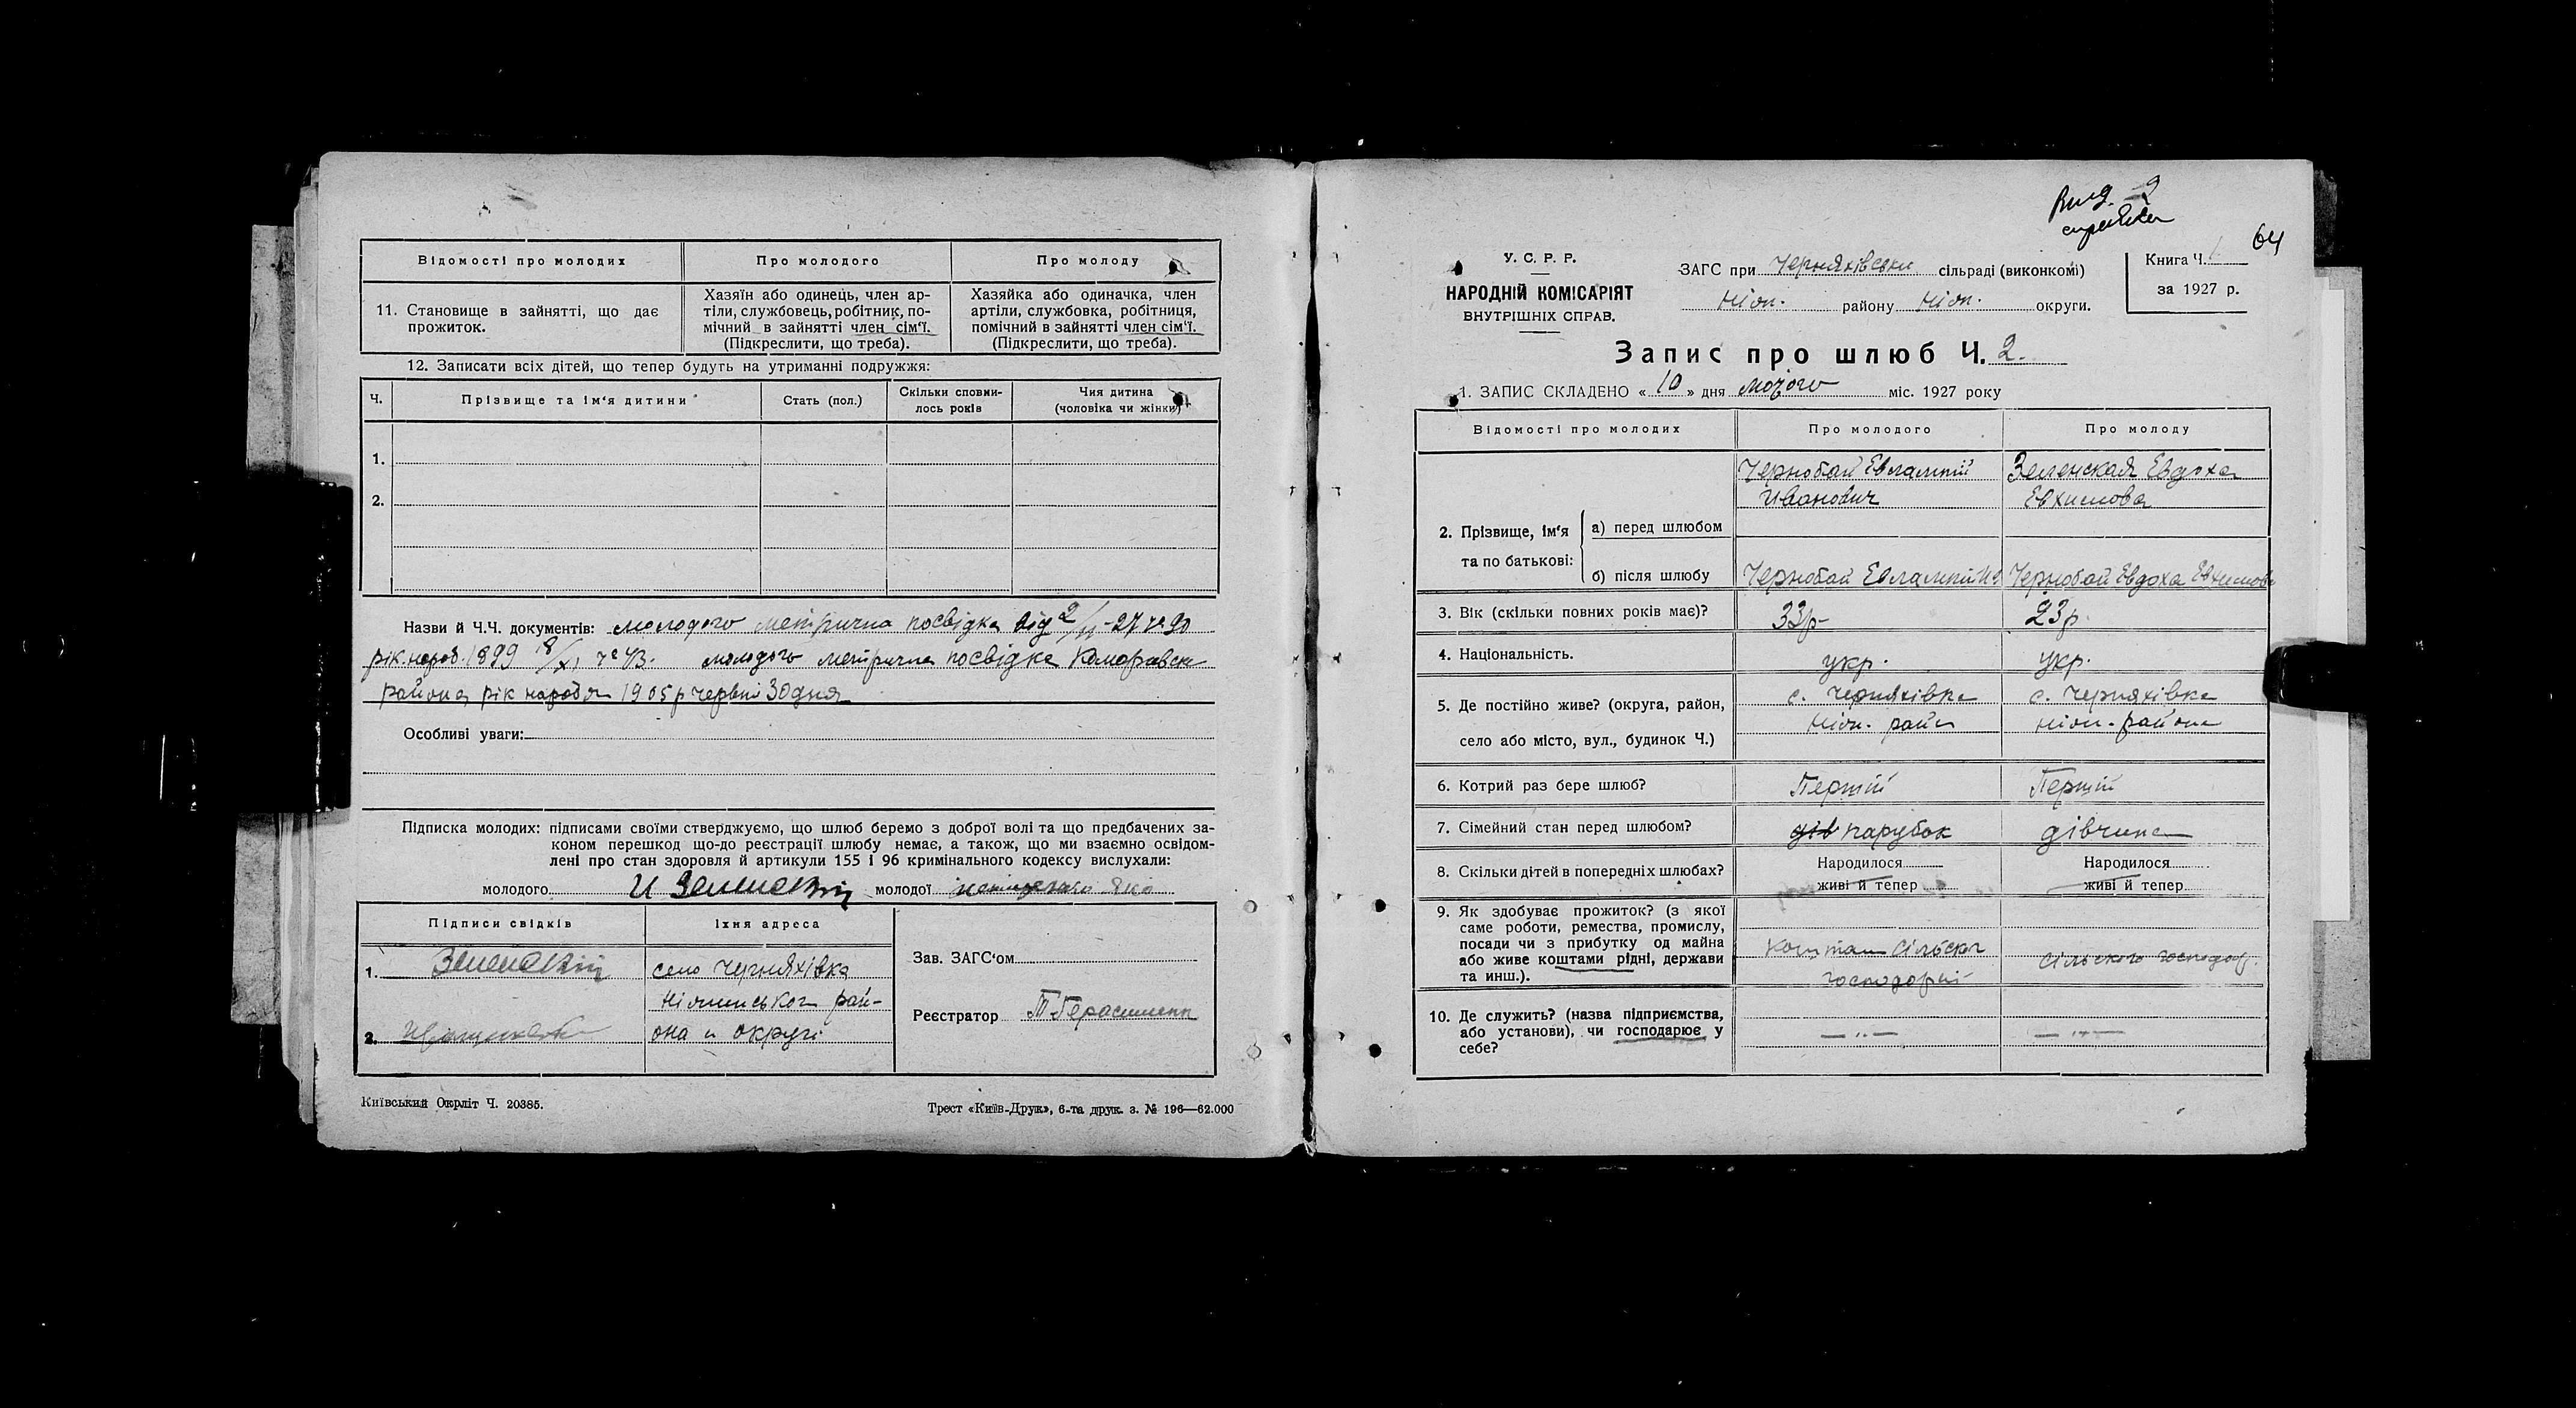 Відомості про молодих
Про молодого
Про молоду
11. Становище в зайнятті, що дає прожиток.
Хазяїн або одинець, член ар-
тіли, службовець, робітник, по-
мічний в зайнятті член сім'ї.
(Підкреслити, що треба).
Хазяйка або одиначка, член
артіли, службовка, робітниця,
помічний в зайнятті член сім'ї.
(Підкреслити, що треба).
12. Записати всіх дітей, що тепер будуть на утриманні подружжя:
Ч.
Прізвище та ім'я дитини
Стать (пол.)
Скільки сповни-
лось років
Чия дитина
(чоловіка чи жінки)
1.
2.
Назви й Ч.Ч. документів: молодого метрична посвідка від 2/II-27 № 90
рік. народ. 1899 18/XI № 43. молодого метрична посвідка Комаровск
района рік народ 1905 р червня 30 дня
Особливі уваги:
Підписка молодих: підписами своїми стверджуємо, що шлюб беремо з доброї волі та що предбачених за-
коном перешкод що-до реєстрації шлюбу немає, а також, що ми взаємно освідом-
лені про стан здоровля й артикули 155 і 96 кримінального кодексу вислухали:
молодого И Зеленский молодої
Підписи свідків
Їхня адреса
1. Зеленский
село Черняхівка
Ніжинського рай-
2.
она и округі
Зав. ЗАГС'ом
Реєстратор Т Герасименко
Київський Окрліт Ч. 20385.
Трест «Київ-Друк», 6-та друк. з. № 196—62.000
Вид. 2
справка
64
У. С. Р. Р.
НАРОДНІЙ КОМІСАРІЯТ
ВНУТРІШНІХ СПРАВ.
ЗАГС при Черняхівськи сільраді (виконкомі)
Ніжн. району Ніжн. округи.
Книга Ч. 1
за 1927 р.
Запис про шлюб Ч. 2.
1. ЗАПИС СКЛАДЕНО « 10 » дня лютого міс. 1927 року
Відомості про молодих
Про молодого
Про молоду
2. Прізвище, ім'я
та по батькові:
а) перед шлюбом
Чернобай Евлампій
Иванович
Зеленская Евдоха
Евхимова
б) після шлюбу
Чернобай Евлампій Ив
Чернобай Евдоха Евхимова
3. Вік (скільки повних років має)?
33 р
23 р.
4. Національність.
укр.
укр.
5. Де постійно живе? (округа, район,
село або місто, вул., будинок Ч.)
с. Черняхівка
Ніжн. райн
с. Черняхівка
Ніжн. района
6. Котрий раз бере шлюб?
Перший
Перший
7. Сімейний стан перед шлюбом?
дів парубок
дівчина
8. Скільки дітей в попередніх шлюбах?
Народилося
живі й тепер
Народилося
живі й тепер
9. Як здобуває прожиток? (з якої
саме роботи, ремества, промислу,
посади чи з прибутку од майна
або живе коштами рідні, держави
та инш.).
коштам сільског
господарст
сільского господар.
10. Де служить? (назва підприємства,
або установи), чи господарює у
себе?
— „ —
— „ —